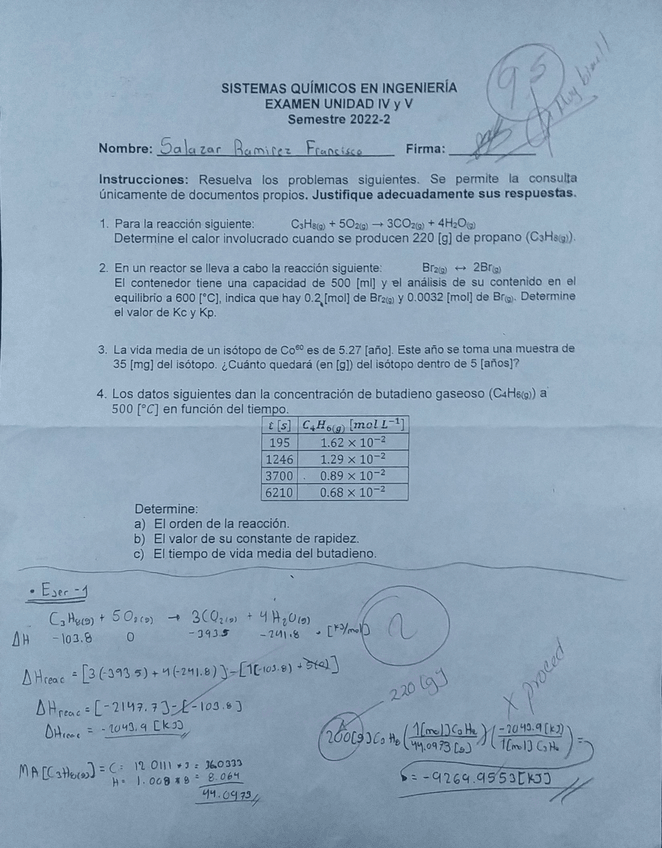 95
Muy bien!!
SISTEMAS QUÍMICOS EN INGENIERÍA
EXAMEN UNIDAD IV y V
Semestre 2022-2
Nombre: Salazar Ramirez Francisco Firma:
Instrucciones: Resuelva los problemas siguientes. Se permite la consulta
únicamente de documentos propios. Justifique adecuadamente sus respuestas.
1. Para la reacción siguiente: C₃H₈(g) + 5O₂(g) → 3CO₂(g) + 4H₂O(g)
Determine el calor involucrado cuando se producen 220 [g] de propano (C₃H₈(g)).
2. En un reactor se lleva a cabo la reacción siguiente: Br₂(g) ↔ 2Br(g)
El contenedor tiene una capacidad de 500 [ml] y el análisis de su contenido en el
equilibrio a 600 [°C], indica que hay 0.2 [mol] de Br₂(g) y 0.0032 [mol] de Br(g). Determine
el valor de Kc y Kp.
3. La vida media de un isótopo de Co⁶⁰ es de 5.27 [año]. Este año se toma una muestra de
35 [mg] del isótopo. ¿Cuánto quedará (en [g]) del isótopo dentro de 5 [años]?
4. Los datos siguientes dan la concentración de butadieno gaseoso (C₄H₆(g)) a
500 [°C] en función del tiempo.
t [s] C₄H₆(g) [mol L⁻¹]
195 1.62 × 10⁻²
1246 1.29 × 10⁻²
3700 0.89 × 10⁻²
6210 0.68 × 10⁻²
Determine:
a) El orden de la reacción.
b) El valor de su constante de rapidez.
c) El tiempo de vida media del butadieno.
• Ejer -1
C₃H₈(g) + 5O₂(g) → 3CO₂(g) + 4H₂O(g)
ΔH -103.8 0 -393.5 -241.8 [kJ/mol]
2
ΔHreac = [3(-393.5) + 4(-241.8)] - [1(-103.8) + 5(0)]
220 [g]
X proced
ΔHreac = [-2147.7] - [-103.8]
ΔHreac = -2043.9 [kJ]
200[g] C₃H₈ (1[mol] C₃H₈ / 44.0973 [g]) (-2043.9 [kJ] / 1[mol] C₃H₈) =
MA[C₃H₈(g)] = C = 12.0111 * 3 = 36.0333
H = 1.008 * 8 = 8.064
44.0973
= -9269.9553 [kJ]